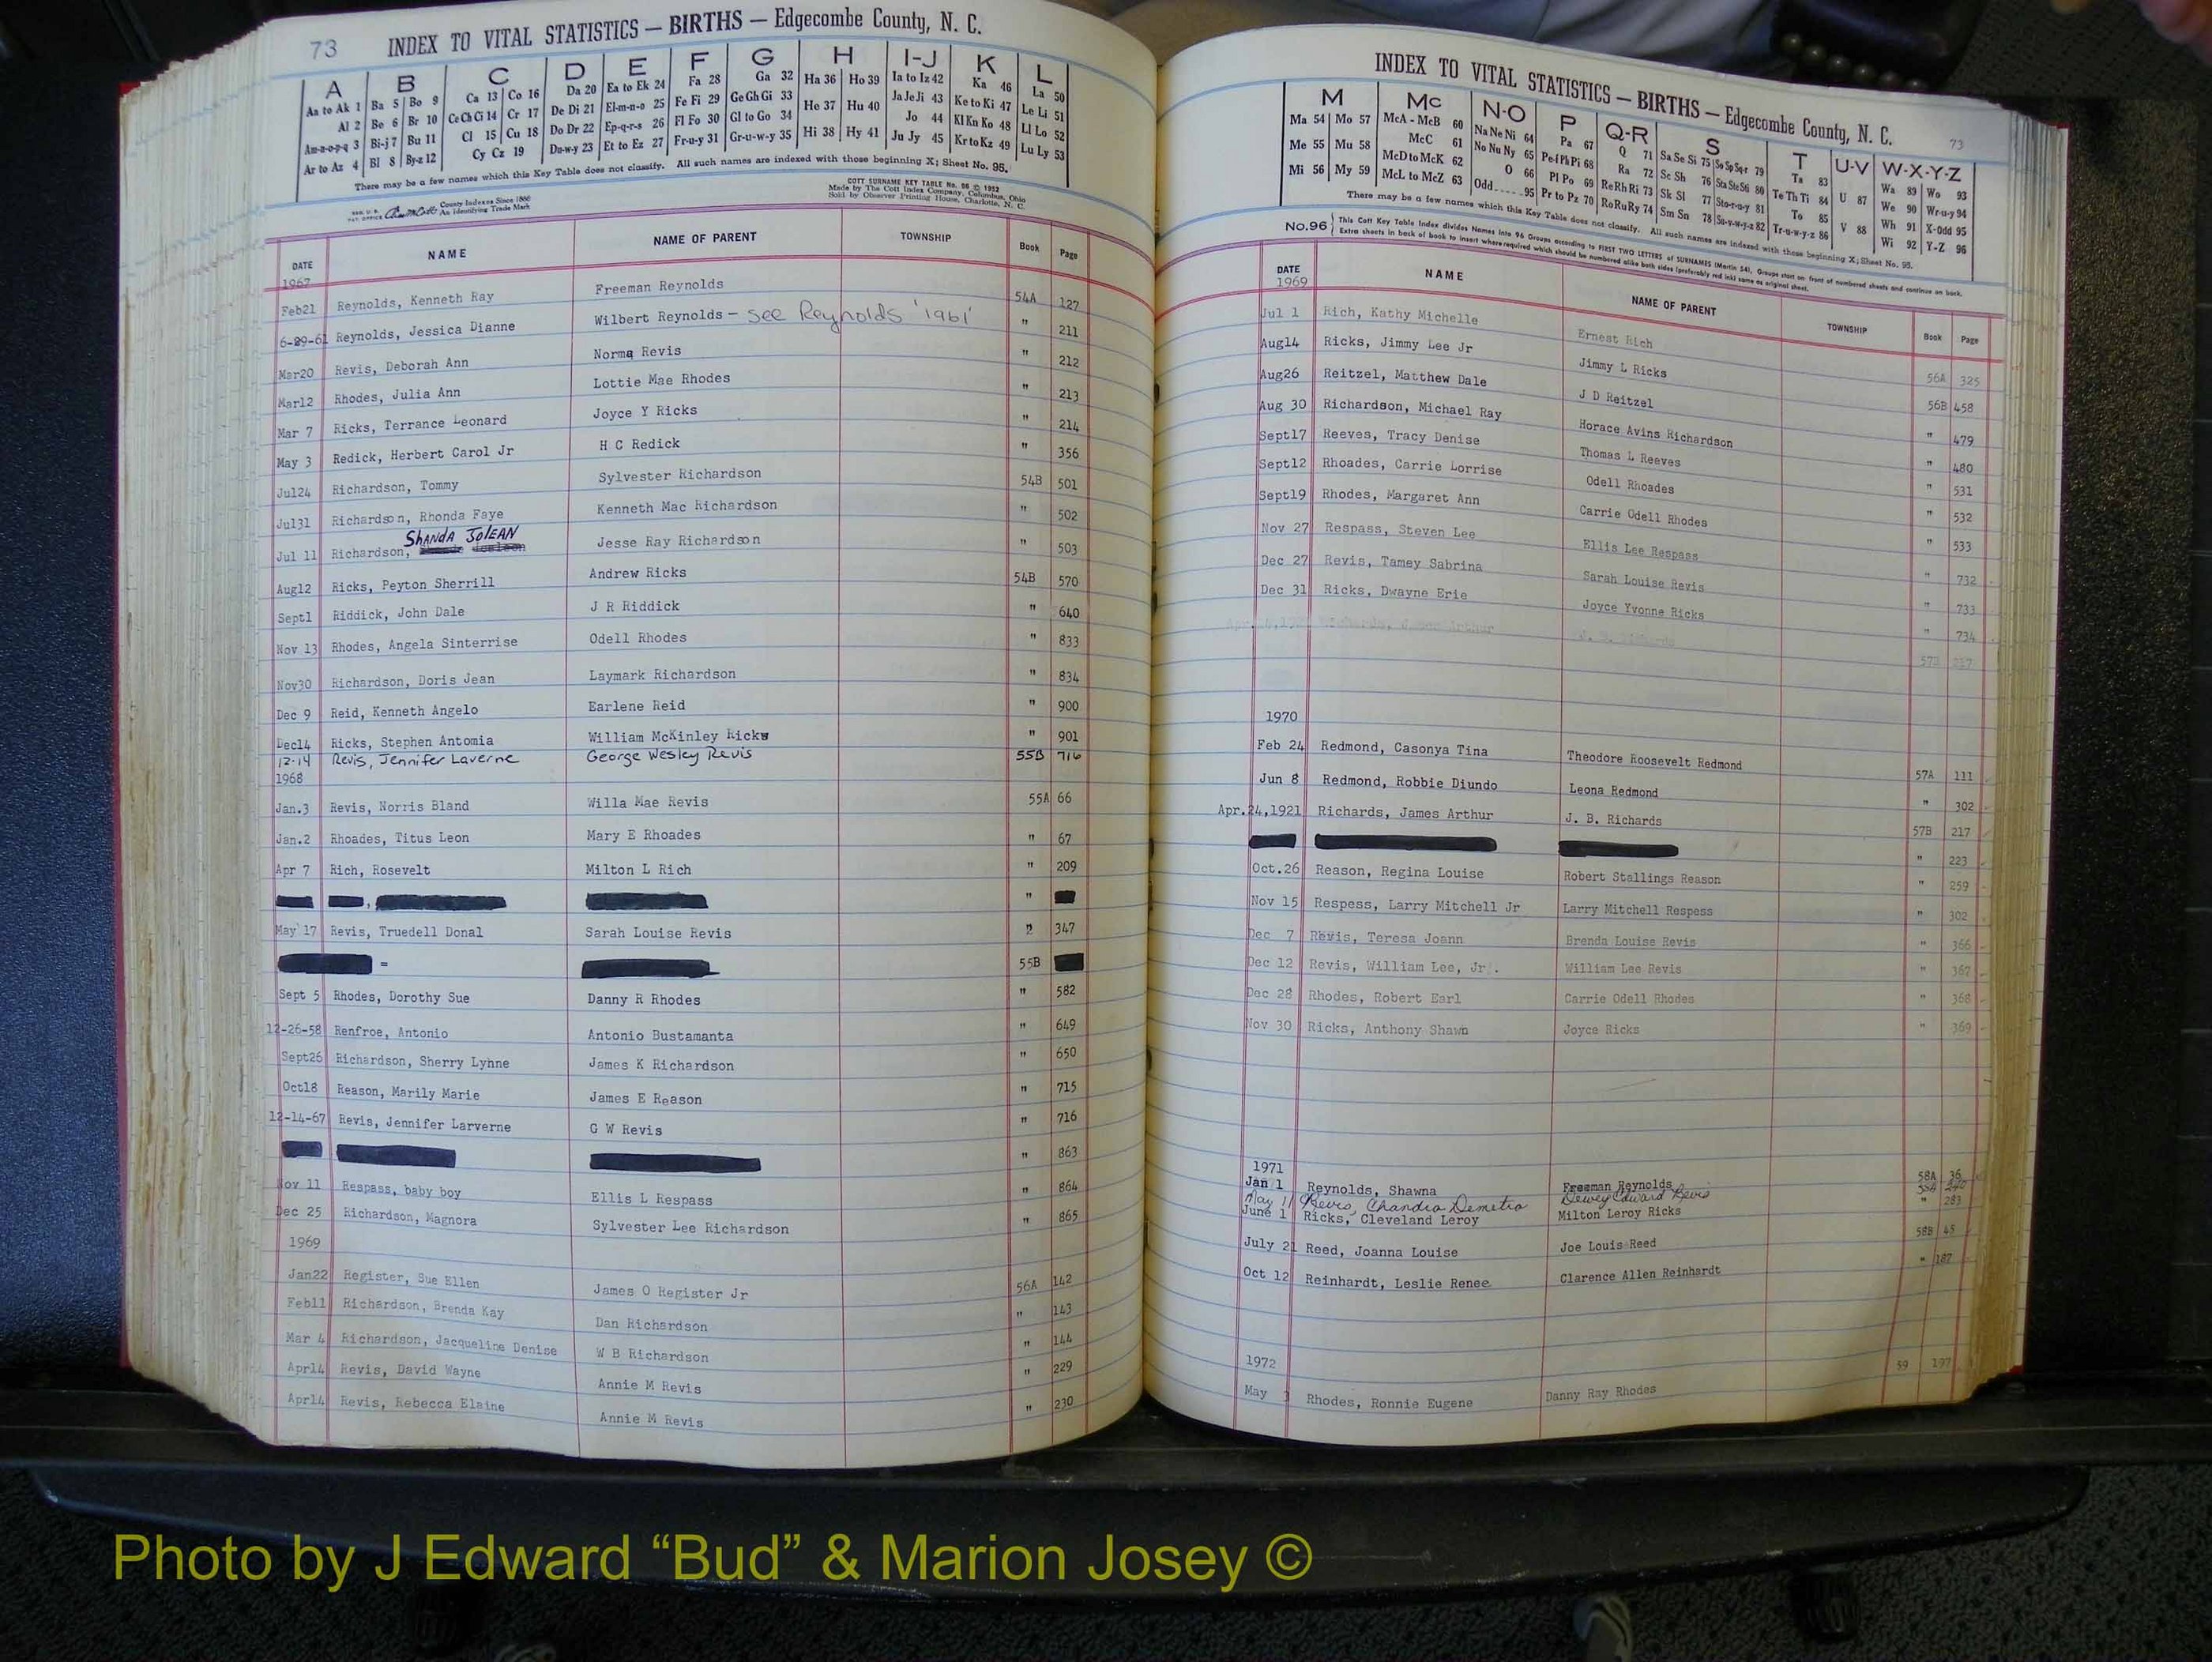 73 INDEX TO VITAL STATISTICS — BIRTHS — Edgecombe County, N. C.
A B C D E F G H I-J K L
Aa to Ak 1 Ba 5 Bo 9 Ca 13 Co 16 Da 20 Ea to Ek 24 Fa 28 Ga 32 Ha 36 Ho 39 Ia to Iz 42 Ka 46 La 50
Al 2 Be 6 Br 10 Ce Ch Ci 14 Cr 17 De Di 21 El-m-n-o 25 Fe Fi 29 Ge Gh Gi 33 He 37 Hu 40 Ja Je Ji 43 Ke to Ki 47 Le Li 51
Am-n-o-p-q 3 Bi-j 7 Bu 11 Cl 15 Cu 18 Do Dr 22 Ep-q-r-s 26 Fl Fo 30 Gl to Go 34 Hi 38 Hy 41 Jo 44 Kl Kn Ko 48 Ll Lo 52
Ar to Az 4 Bl 8 By-z 12 Cy Cz 19 Du-w-y 23 Et to Ez 27 Fr-u-y 31 Gr-u-w-y 35 Ju Jy 45 Kr to Kz 49 Lu Ly 53
There may be a few names which this Key Table does not classify. All such names are indexed with those beginning X; Sheet No. 95.
County Indexes Since 1888
An Identifying Trade Mark
COTT SURNAME KEY TABLE No. 96 © 1952
Made by The Cott Index Company, Columbus, Ohio
Sold by Observer Printing House, Charlotte, N. C.
DATE NAME NAME OF PARENT TOWNSHIP Book Page
1967
Feb21 Reynolds, Kenneth Ray Freeman Reynolds 54A 127
6-29-61 Reynolds, Jessica Dianne Wilbert Reynolds - see Reynolds '1961' " 211
Mar20 Revis, Deborah Ann Norma Revis " 212
Mar12 Rhodes, Julia Ann Lottie Mae Rhodes " 213
Mar 7 Ricks, Terrance Leonard Joyce Y Ricks " 214
May 3 Redick, Herbert Carol Jr H C Redick " 356
Jul24 Richardson, Tommy Sylvester Richardson 54B 501
Jul31 Richardson, Rhonda Faye Kenneth Mac Richardson " 502
SHANDA JOLEAN
Jul 11 Richardson, Jesse Ray Richardson " 503
Aug12 Ricks, Peyton Sherrill Andrew Ricks 54B 570
Sept1 Riddick, John Dale J R Riddick " 640
Nov 13 Rhodes, Angela Sinterrise Odell Rhodes " 833
Nov30 Richardson, Doris Jean Laymark Richardson " 834
Dec 9 Reid, Kenneth Angelo Earlene Reid " 900
Dec14 Ricks, Stephen Antomia William McKinley Ricks " 901
12-14 Revis, Jennifer Laverne George Wesley Revis 55B 716
1968
Jan.3 Revis, Norris Bland Willa Mae Revis 55A 66
Jan.2 Rhoades, Titus Leon Mary E Rhoades " 67
Apr 7 Rich, Rosevelt Milton L Rich " 209
"
May 17 Revis, Truedell Donal Sarah Louise Revis " 347
= 55B
Sept 5 Rhodes, Dorothy Sue Danny R Rhodes " 582
12-26-58 Renfroe, Antonio Antonio Bustamanta " 649
Sept26 Richardson, Sherry Lyhne James K Richardson " 650
Oct18 Reason, Marily Marie James E Reason " 715
12-14-67 Revis, Jennifer Larverne G W Revis " 716
" 863
Nov 11 Respass, baby boy Ellis L Respass " 864
Dec 25 Richardson, Magnora Sylvester Lee Richardson " 865
1969
Jan22 Register, Sue Ellen James O Register Jr 56A 142
Feb11 Richardson, Brenda Kay Dan Richardson " 143
Mar 4 Richardson, Jacqueline Denise W B Richardson " 144
Apr14 Revis, David Wayne Annie M Revis " 229
Apr14 Revis, Rebecca Elaine Annie M Revis " 230
INDEX TO VITAL STATISTICS — BIRTHS — Edgecombe County, N. C. 73
M Mc N-O P Q-R S T U-V W-X-Y-Z
Ma 54 Mo 57 McA - McB 60 Na Ne Ni 64 Pa 67 Q 71 Sa Se Si 75 So Sp Sq-r 79 Ta 83 U 87 Wa 89 Wo 93
Me 55 Mu 58 McC 61 No Nu Ny 65 Pe-f Ph Pi 68 Ra 72 Sc Sh 76 Sta Ste Sti 80 Te Th Ti 84 We 90 Wr-u-y 94
Mi 56 My 59 McD to McK 62 O 66 Pl Po 69 Re Rh Ri 73 Sk Sl 77 Sto-r-u-y 81 To 85 V 88 Wh 91 X-Odd 95
McL to McZ 63 Odd 95 Pr to Pz 70 Ro Ru Ry 74 Sm Sn 78 Su-v-w-y-z 82 Tr-u-w-y-z 86 Wi 92 Y-Z 96
There may be a few names which this Key Table does not classify. All such names are indexed with those beginning X; Sheet No. 95.
No.96 This Cott Key Table Index divides Names into 96 Groups according to FIRST TWO LETTERS of SURNAMES (Martin 54). Groups start on front of numbered sheets and continue on back.
Extra sheets in back of book to insert where required which should be numbered alike both sides (preferably red ink) same as original sheet.
DATE NAME NAME OF PARENT TOWNSHIP Book Page
1969
Jul 1 Rich, Kathy Michelle Ernest Rich 56A 325
Aug14 Ricks, Jimmy Lee Jr Jimmy L Ricks 56B 458
Aug26 Reitzel, Matthew Dale J D Reitzel " 479
Aug 30 Richardson, Michael Ray Horace Avins Richardson " 480
Sept17 Reeves, Tracy Denise Thomas L Reeves " 531
Sept12 Rhoades, Carrie Lorrise Odell Rhoades " 532
Sept19 Rhodes, Margaret Ann Carrie Odell Rhodes " 533
Nov 27 Respass, Steven Lee Ellis Lee Respass " 732
Dec 27 Revis, Tamey Sabrina Sarah Louise Revis " 733
Dec 31 Ricks, Dwayne Erie Joyce Yvonne Ricks " 734
1970
Feb 24 Redmond, Casonya Tina Theodore Roosevelt Redmond 57A 111
Jun 8 Redmond, Robbie Diundo Leona Redmond " 302
Apr.24,1921 Richards, James Arthur J. B. Richards 57B 217
" 223
Oct.26 Reason, Regina Louise Robert Stallings Reason " 259
Nov 15 Respess, Larry Mitchell Jr Larry Mitchell Respess " 302
Dec 7 Revis, Teresa Joann Brenda Louise Revis " 366
Dec 12 Revis, William Lee, Jr. William Lee Revis " 367
Dec 28 Rhodes, Robert Earl Carrie Odell Rhodes " 368
Nov 30 Ricks, Anthony Shawn Joyce Ricks " 369
1971
Jan 1 Reynolds, Shawna Freeman Reynolds 58A 36
May 11 Revis, Chandra Demetia Dewey Edward Revis
June 1 Ricks, Cleveland Leroy Milton Leroy Ricks " 283
July 21 Reed, Joanna Louise Joe Louis Reed 58B 45
Oct 12 Reinhardt, Leslie Renee Clarence Allen Reinhardt " 187
1972
May 3 Rhodes, Ronnie Eugene Danny Ray Rhodes 59 197
Photo by J Edward “Bud” & Marion Josey ©